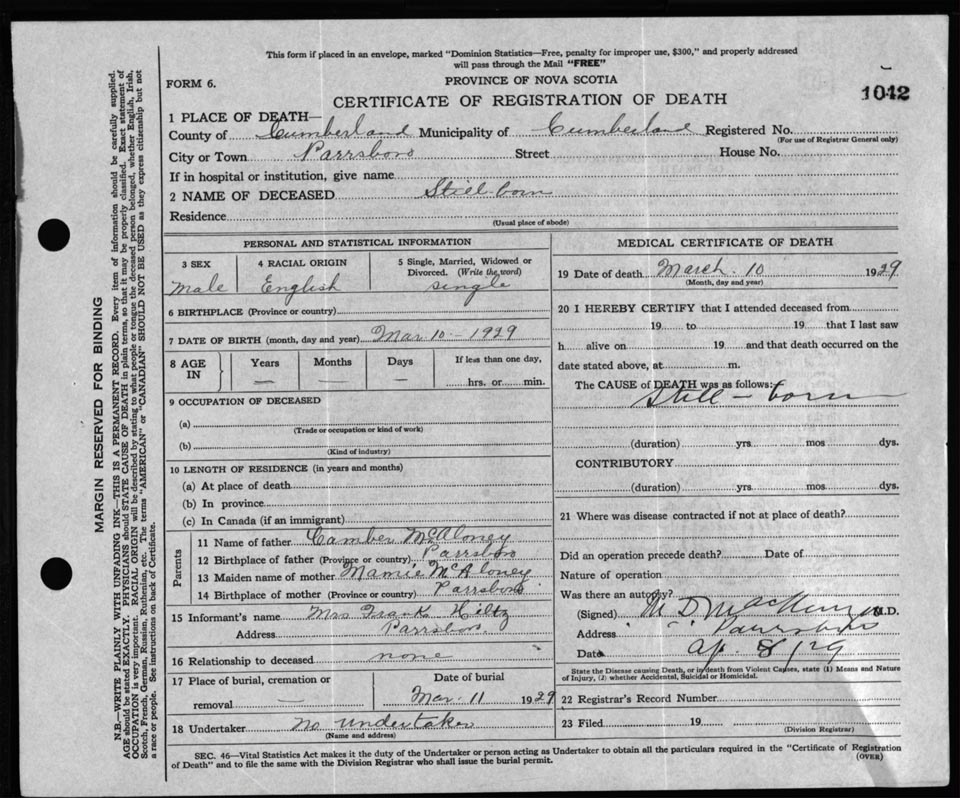 This form if placed in an envelope, marked "Dominion Statistics—Free, penalty for improper use, $300," and properly addressed
will pass through the Mail "FREE"
FORM 6.
PROVINCE OF NOVA SCOTIA
1042
CERTIFICATE OF REGISTRATION OF DEATH
1 PLACE OF DEATH—
County of Cumberland Municipality of Cumberland Registered No.
(For use of Registrar General only)
City or Town Parrsboro Street House No.
If in hospital or institution, give name
2 NAME OF DECEASED Still-born
Residence
(Usual place of abode)
PERSONAL AND STATISTICAL INFORMATION
3 SEX 4 RACIAL ORIGIN 5 Single, Married, Widowed or
Divorced. (Write the word)
male English single
6 BIRTHPLACE (Province or country)
7 DATE OF BIRTH (month, day and year) Mar 10 - 1929
8 AGE IN Years Months Days If less than one day,
— — — hrs. or min.
9 OCCUPATION OF DECEASED
(a)
(Trade or occupation or kind of work)
(b)
(Kind of industry)
10 LENGTH OF RESIDENCE (in years and months)
(a) At place of death
(b) In province
(c) In Canada (if an immigrant)
Parents
11 Name of father Camber McAloney
12 Birthplace of father (Province or country) Parrsboro
13 Maiden name of mother Mamie McAloney
14 Birthplace of mother (Province or country) Parrsboro
15 Informant's name Mrs Frank Hiltz
Address Parrsboro.
16 Relationship to deceased none
17 Place of burial, cremation or Date of burial
removal — Mar. 11 1929
18 Undertaker No undertaker
(Name and address)
MEDICAL CERTIFICATE OF DEATH
19 Date of death March. 10 1929
(Month, day and year)
20 I HEREBY CERTIFY that I attended deceased from
19 to 19 that I last saw
h alive on 19 and that death occurred on the
date stated above, at m.
The CAUSE of DEATH was as follows:
Still - born
(duration) yrs. mos dys.
CONTRIBUTORY
(duration) yrs. mos dys.
21 Where was disease contracted if not at place of death?
Did an operation precede death? Date of
Nature of operation
Was there an autopsy?
(Signed) M D MacKenzie M.D.
Address " " Parrsboro
Date Ap. 8/29
State the Disease causing Death, or in death from Violent Causes, state (1) Means and Nature
of Injury, (2) whether Accidental, Suicidal or Homicidal.
22 Registrar's Record Number
23 Filed 19
(Division Registrar)
SEC. 46—Vital Statistics Act makes it the duty of the Undertaker or person acting as Undertaker to obtain all the particulars required in the "Certificate of Registration
of Death" and to file the same with the Division Registrar who shall issue the burial permit.
(OVER)
MARGIN RESERVED FOR BINDING
N.B.—WRITE PLAINLY WITH UNFADING INK—THIS IS A PERMANENT RECORD. Every item of information should be carefully supplied.
AGE should be stated EXACTLY. PHYSICIANS should STATE CAUSE OF DEATH in plain terms, so that it may be properly classified. Exact statement of
OCCUPATION is very important. RACIAL ORIGIN will be described by stating to what people or tongue the deceased person belonged, whether English, Irish,
Scotch, French, German, Russian, Ruthenian, etc. The terms "AMERICAN" or "CANADIAN" SHOULD NOT BE USED as they express citizenship but not
a race or people. See instructions on back of Certificate.